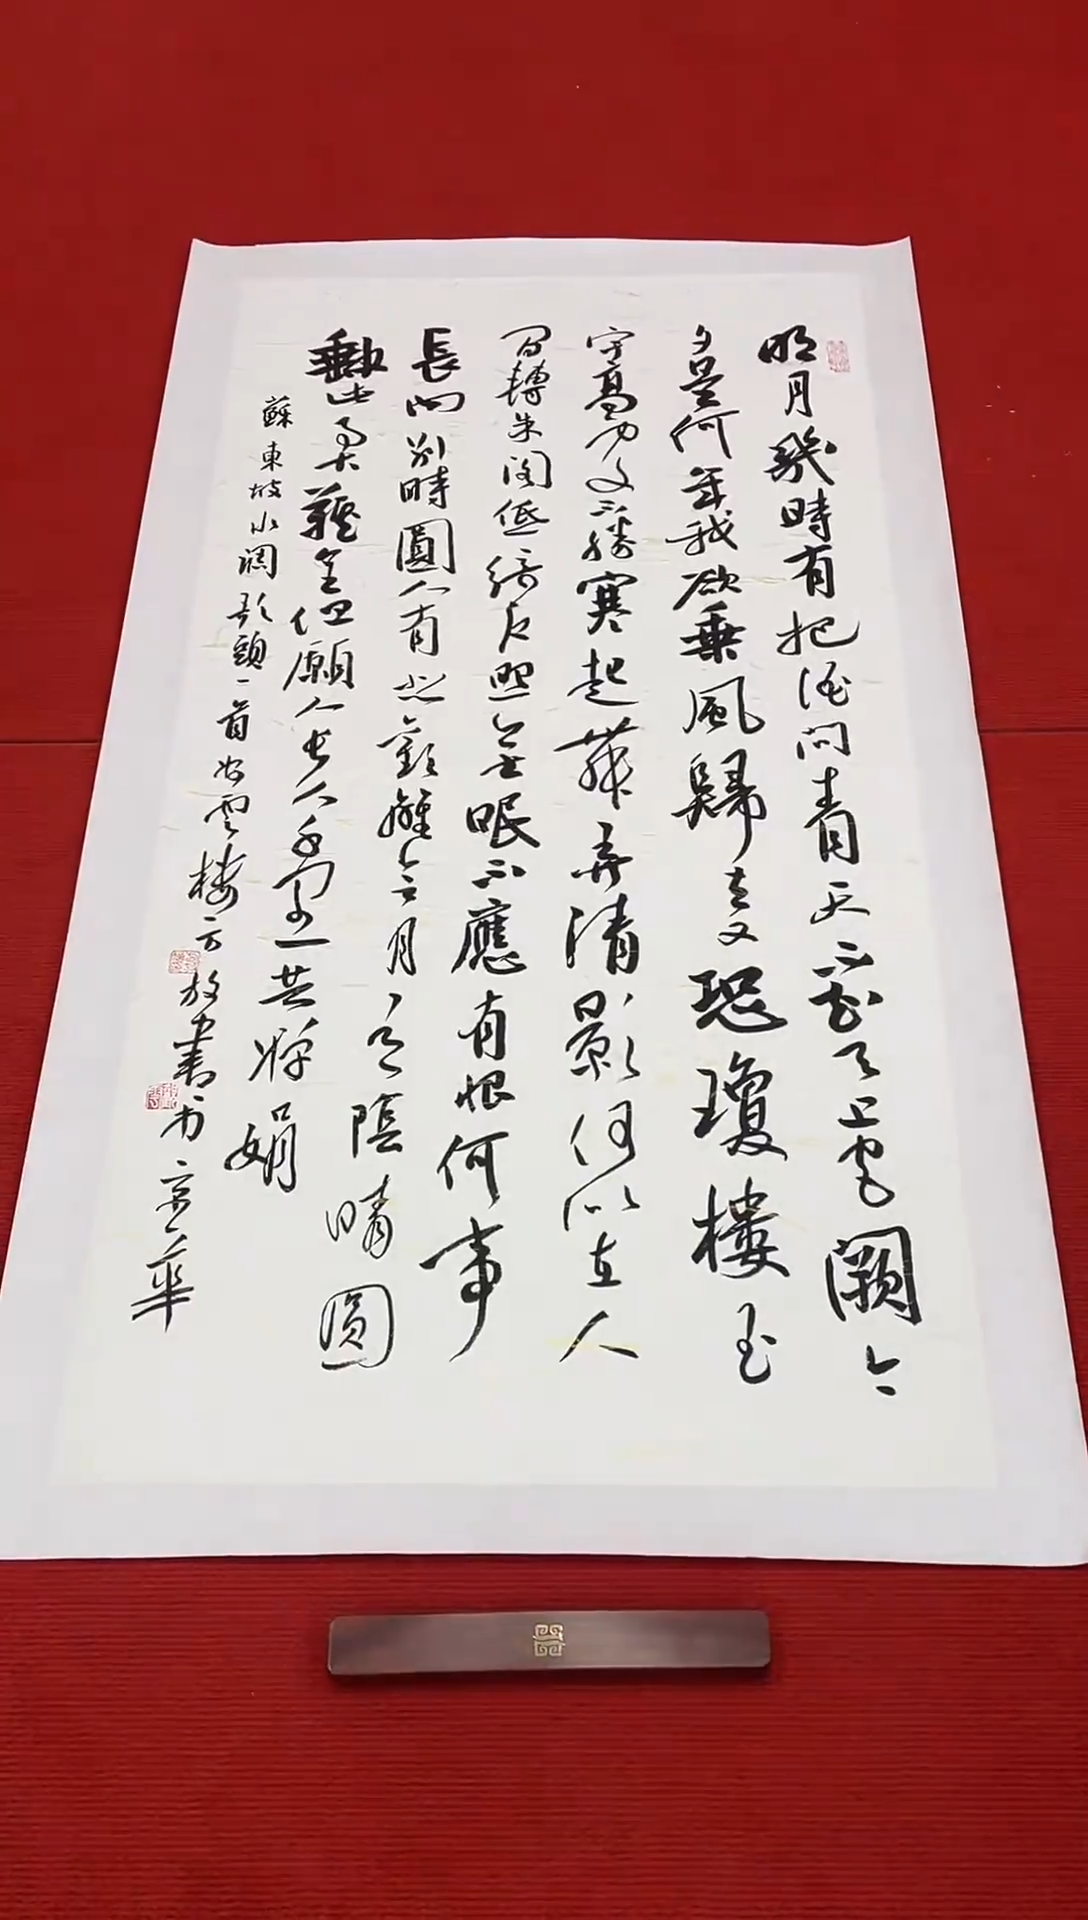 明月幾時有把酒問青天不知天上宮闕今
夕是何年我欲乘風歸去又恐瓊樓玉
宇高處不勝寒起舞弄清影何似在人
間轉朱閣低綺户照無眠不應有恨何事
長向別時圓人有悲歡離合月有陰晴圓
缺此事古難全但願人長久千里共嬋娟
蘇東坡水調歌頭一首雲樓方放書於京華